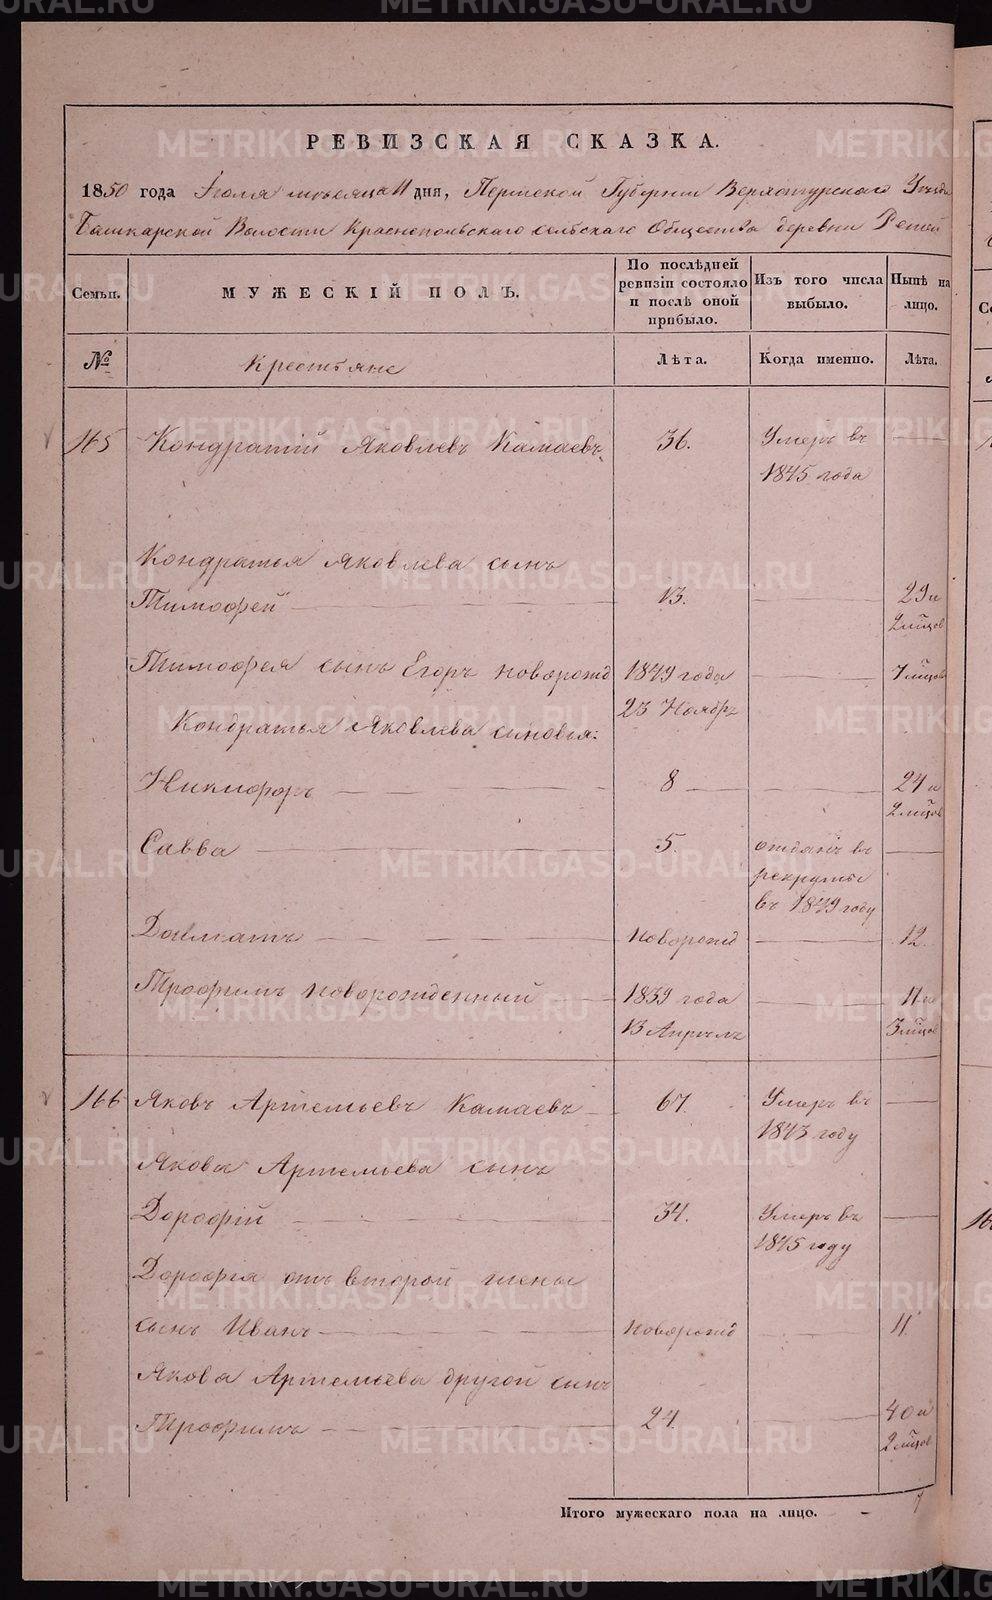 РЕВИЗСКАЯ СКАЗКА.
1850 года Іюля мѣсяца 11 дня, Пермской Губерніи Верхотурскаго Уѣзда
Башкарской Волости Краснопольскаго сельскаго Общества деревни Рѣтей
Семьи. МУЖЕСКІЙ ПОЛЪ. По послѣдней ревизіи состояло и послѣ оной прибыло. Изъ того числа выбыло. Нынѣ на лицо.
№ Крестьяне Лѣта. Когда именно. Лѣта.
165 Кондратій Яковлевъ Камаевъ 36. Умеръ въ
1845 года
Кондратья Яковлева сынъ
Тимофей 13. 29 и
2 мѣсяц
Тимофея сынъ Егоръ новорожд 1849 года 7 мѣсяц
23 Ноябр
Кондратья Яковлева сыновья:
Никифоръ 8 24 и
2 мѣсяц
Савва 5. отданъ въ
рекруты
въ 1849 году
Далматъ новорожд 12.
Трофимъ новорожденный 1839 года 11 и
13 Апрѣль 3 мѣсяц
166 Яковъ Артемьевъ Камаевъ 67. Умеръ въ
1843 году
Якова Артемьева сынъ
Дорофій 34. Умеръ въ
1845 году
Дорофея отъ второй жены
сынъ Иванъ новорожд 11
Якова Артемьева другой сынъ
Трофимъ 24. 40 и
2 мѣсяц
Итого мужескаго пола на лицо. 7
METRIKI.GASO-URAL.RU